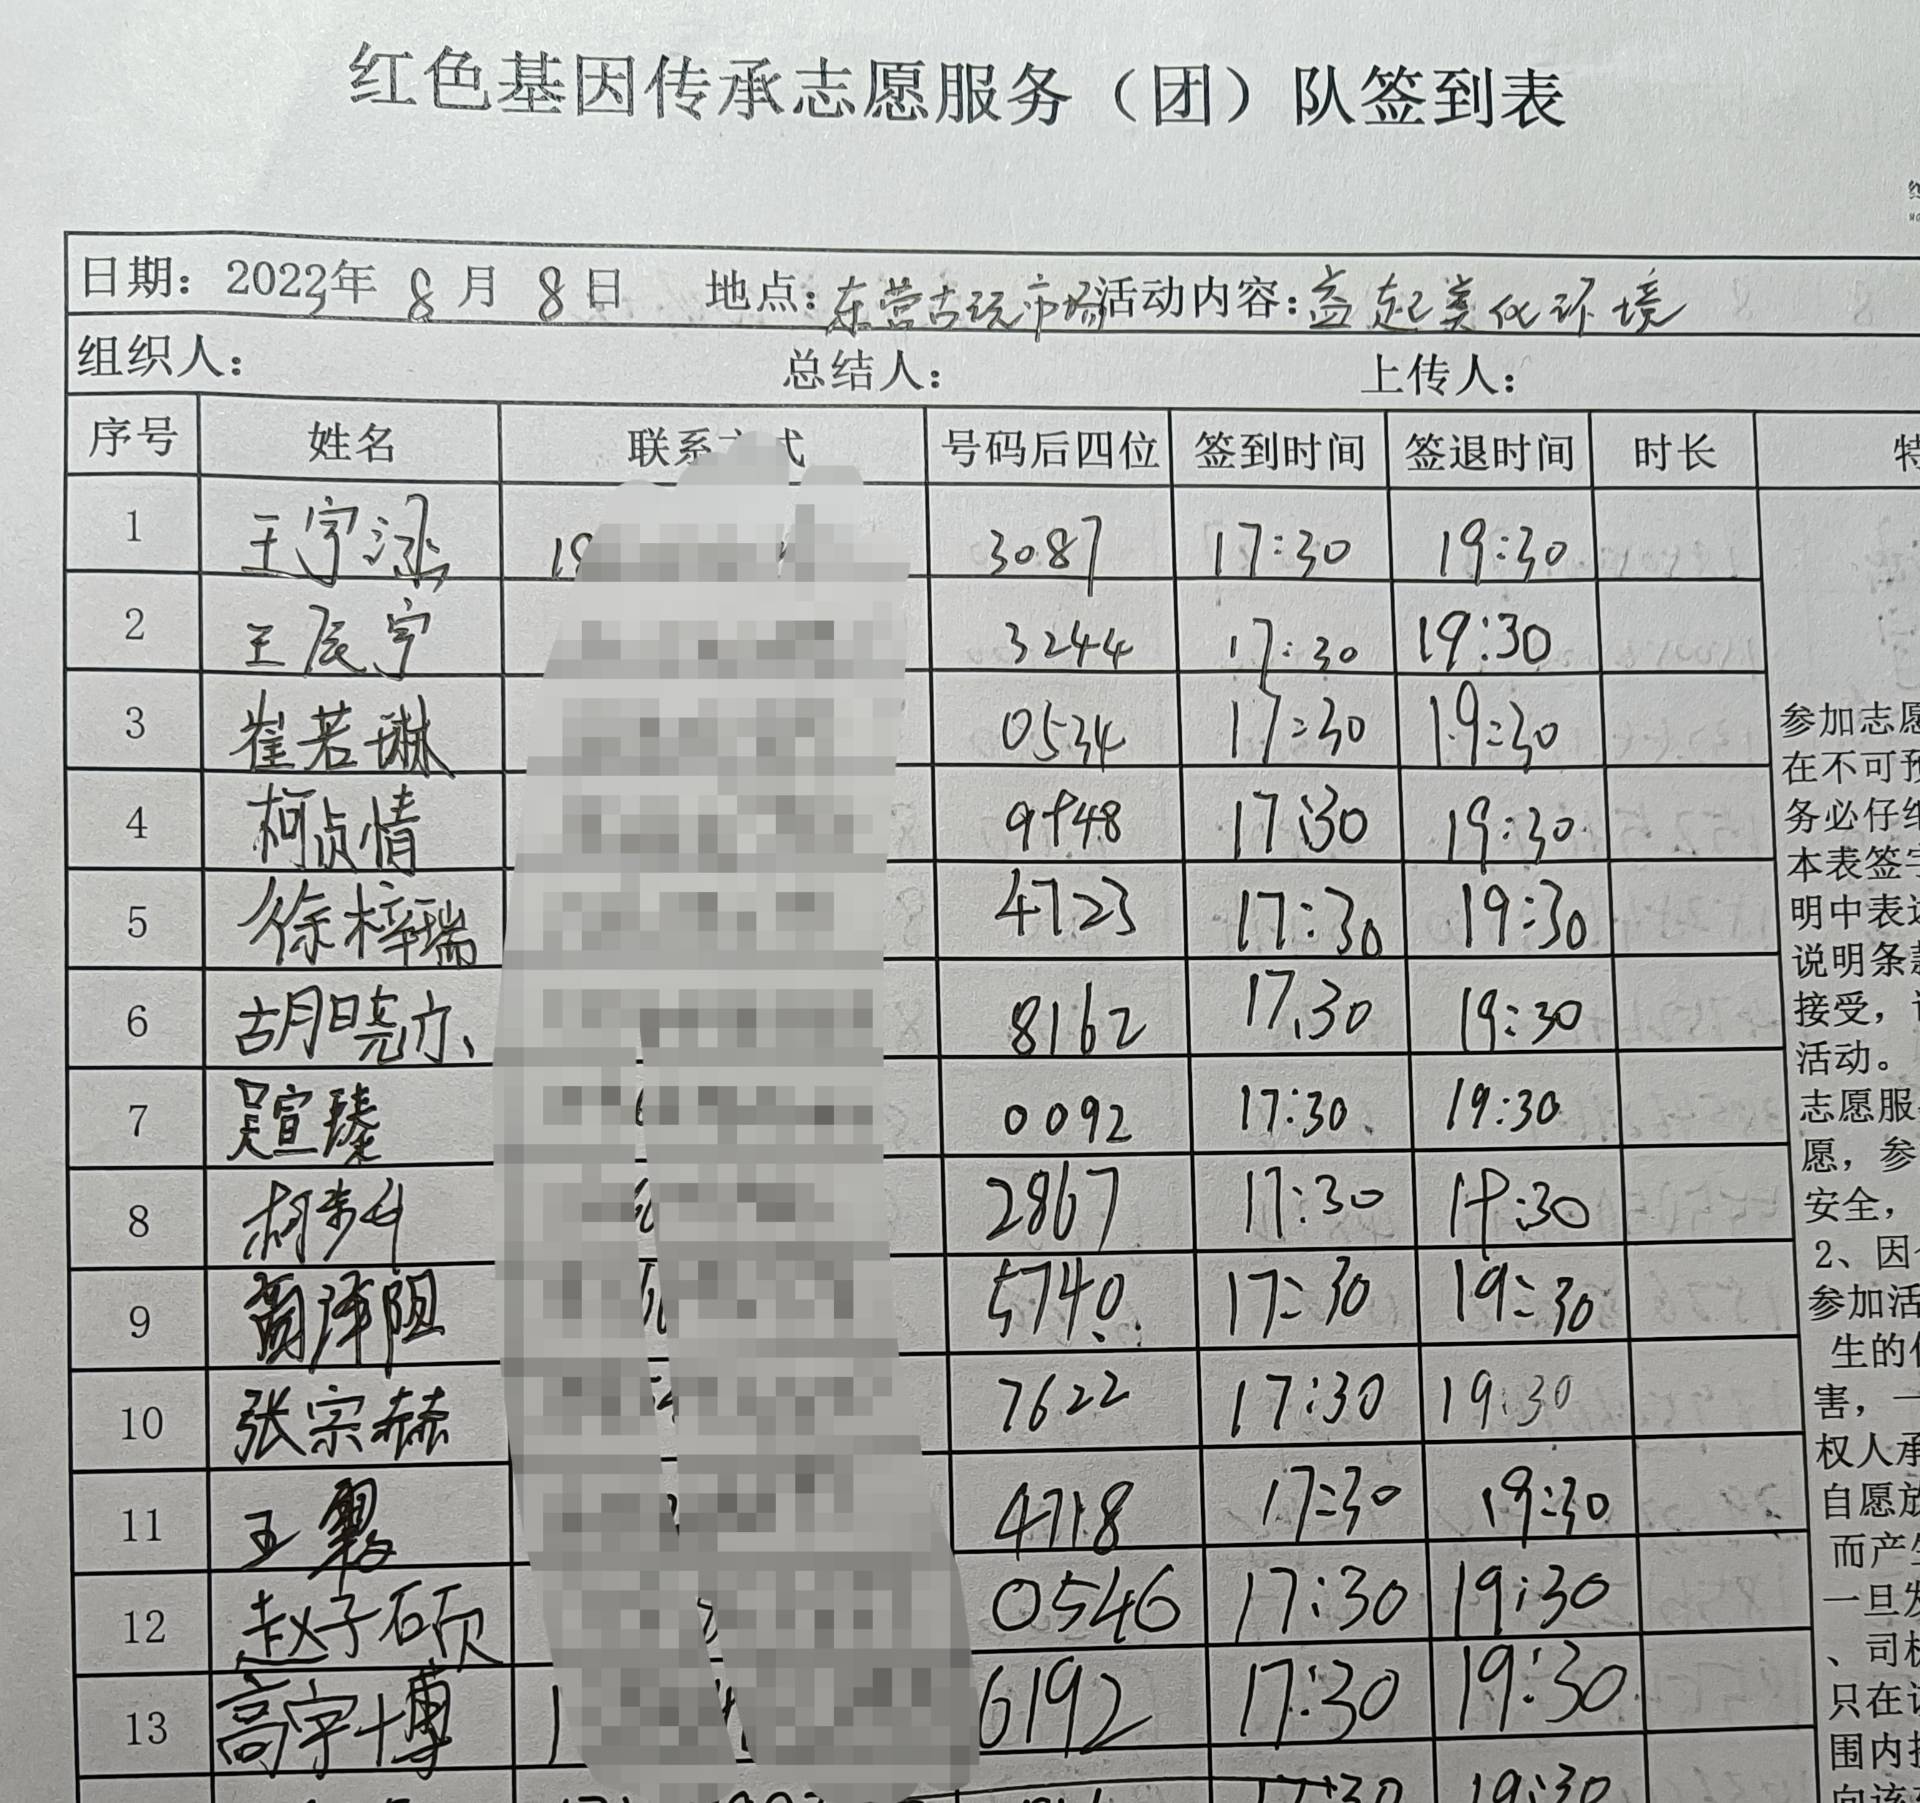 红色基因传承志愿服务（团）队签到表
日期：2023年 8月 8日 地点：东营古玩市场 活动内容：益起美化环境
组织人： 总结人： 上传人：
序号 姓名 联系方式 号码后四位 签到时间 签退时间 时长 特
1 王宇涵 3087 17:30 19:30
2 王辰宇 3244 17:30 19:30
3 崔若琳 0534 17:30 19:30
参加志愿
4 柯贞情 9948 17:30 19:30
在不可预
务必仔细
本表签字
5 徐梓瑞 4723 17:30 19:30
明中表达
说明条款
6 胡晓亦 8162 17:30 19:30
接受，
活动。
7 吴宣臻 0092 17:30 19:30
志愿服
愿，参
8 柯 2867 17:30 19:30
安全，
2、因
9 泽阳 5740 17:30 19:30
参加活
生的
10 张宗赫 7622 17:30 19:30
害，一
权人承
11 王 4718 17:30 19:30
自愿放
而产生
12 赵子硕 0546 17:30 19:30
一旦发
、司机
13 高宇博 6192 17:30 19:30
只在
围内
17:30 19:30
向该